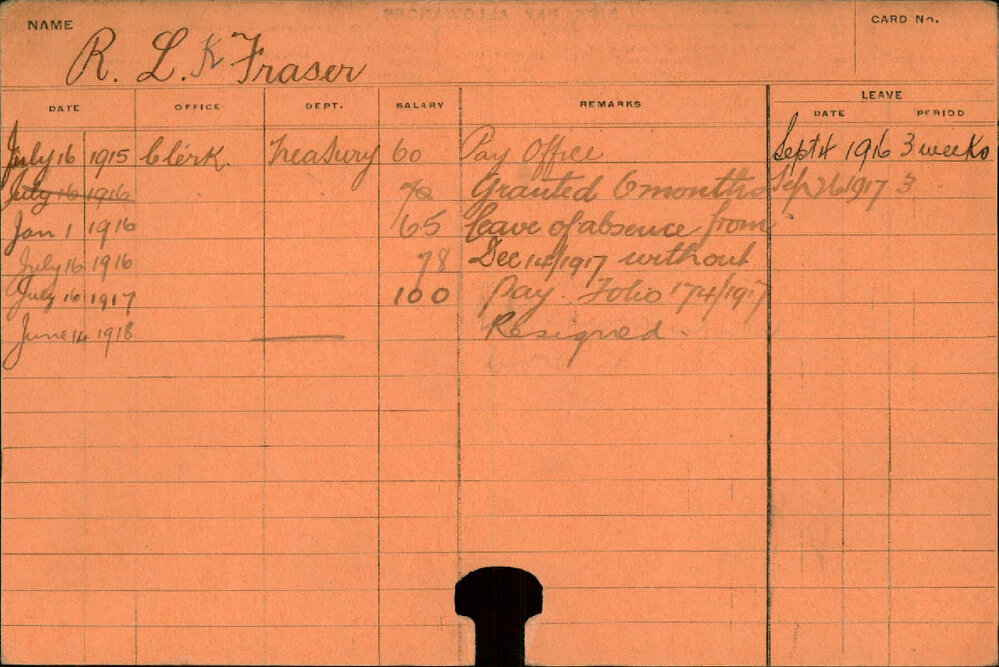 NAME
CARD No.
R. L. K Fraser
DATE OFFICE DEPT. SALARY REMARKS LEAVE
DATE PERIOD
July 16 1915 Clerk. Treasury 60 Pay Office Sept 4 1916 3 weeks
July 16 1916 70 Granted 6 months Sep 26 1917 3
Jan 1 1916 65 leave of absence from
July 16 1916 78 Dec 14/1917 without
July 16 1917 100 Pay Folio 174/1917
June 14 1918 Resigned